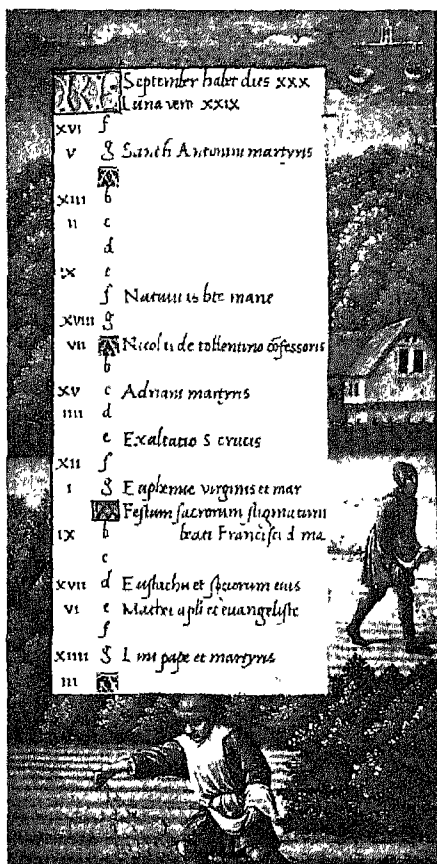 KL September habet dies xxx
Luna vero xxix
xvi f
v g Sancti Antonini martyris
A
xiii b
ii c
d
x e
f Natiuitas bte marie
xviii g
vii A Nicolai de tollentino cōfessoris
b
xv c Adriani martyris
iiii d
e Exaltatio S crucis
xii f
i g Euphemie virginis et mar
A Festum sacrorum stigmatum
ix b beati Francisci d ma
c
xvii d Eustachii et sociorum eius
vi e Mathei apli et euangeliste
f
xiiii g Lini pape et martyris
iii A